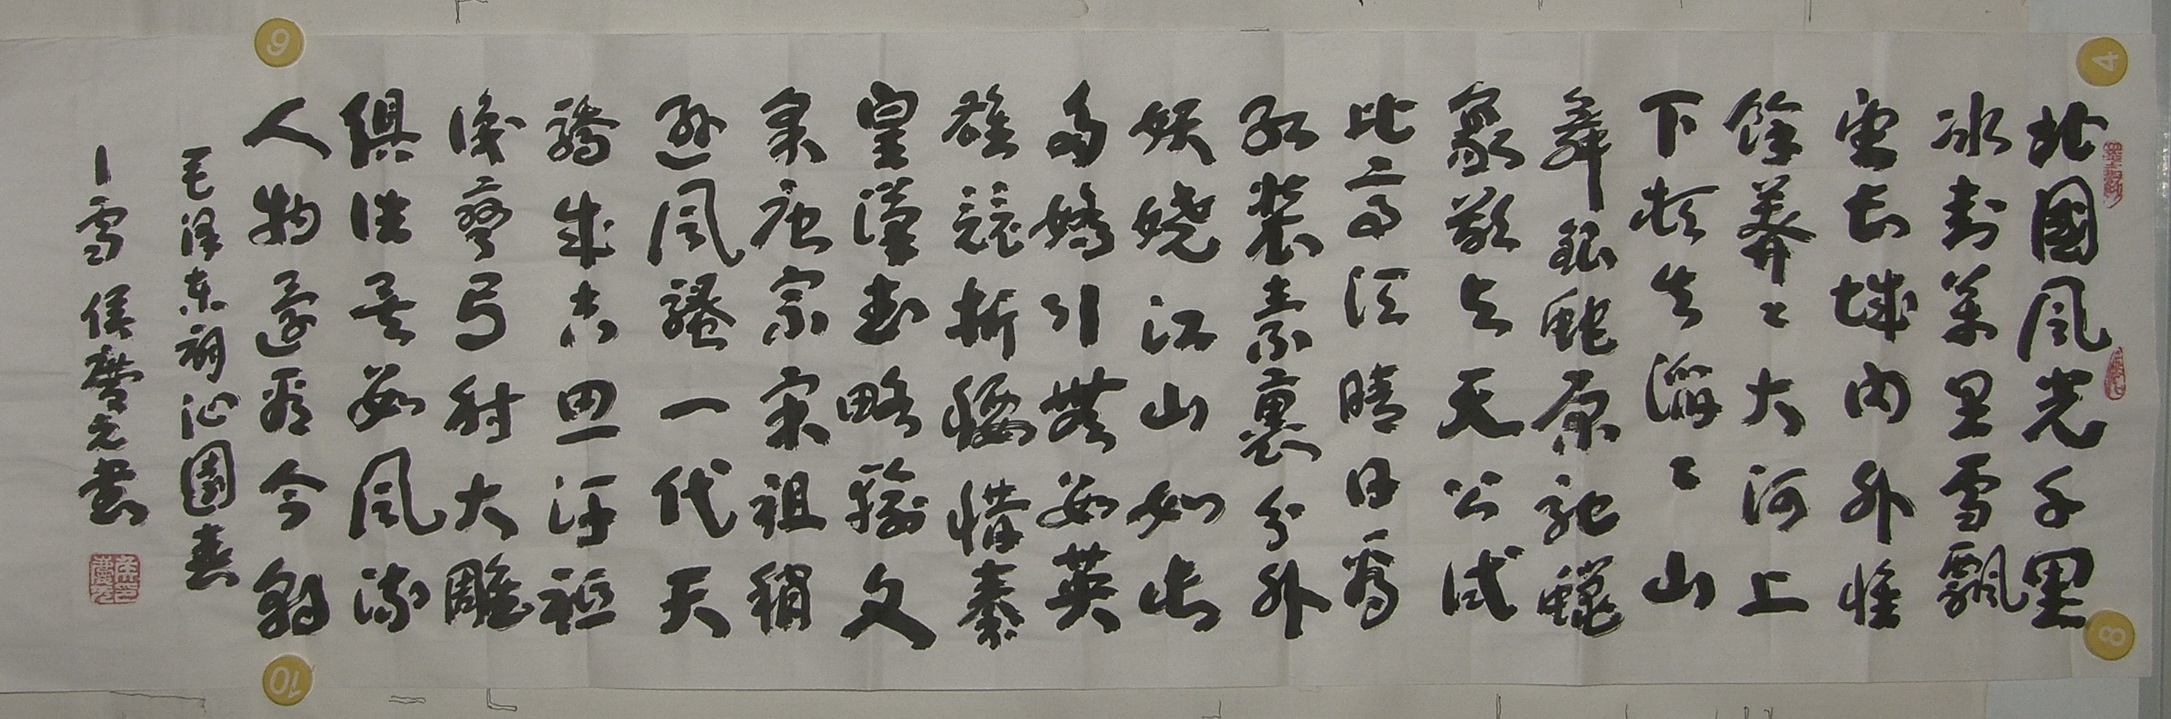 北國風光千里
冰封萬里雪飄
望長城內外惟
餘莽〻大河上
下頓失滔〻山
舞銀蛇原馳蠟
象欲與天公試
比高須晴日看
紅裝素裹分外
妖嬈江山如此
多嬌引無數英
雄競折腰惜秦
皇漢武略輸文
采唐宗宋祖稍
遜風騷一代天
驕成吉思汗祗
識彎弓射大雕
俱往矣數風流
人物還看今朝
毛澤東詞沁園春
雪 侯慶元書
4
8
10